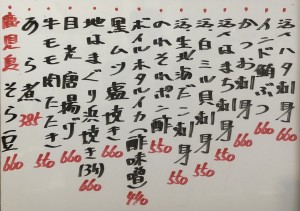 活ハタ刺身 660
インド鮪ぶつ 660
かつお刺身 660
活はまち刺身 550
活白ミル貝刺身 550
活生北海だこ刺身 550
のれそれポン酢 550
ボイルホタルイカ(酢味噌) 440
黒ムツ塩焼き 660
地はまぐり浜焼き(3ヶ) 660
目光唐揚げ 660
牛モモ肉たたき 550
あら煮 385
鹿児島そら豆 660